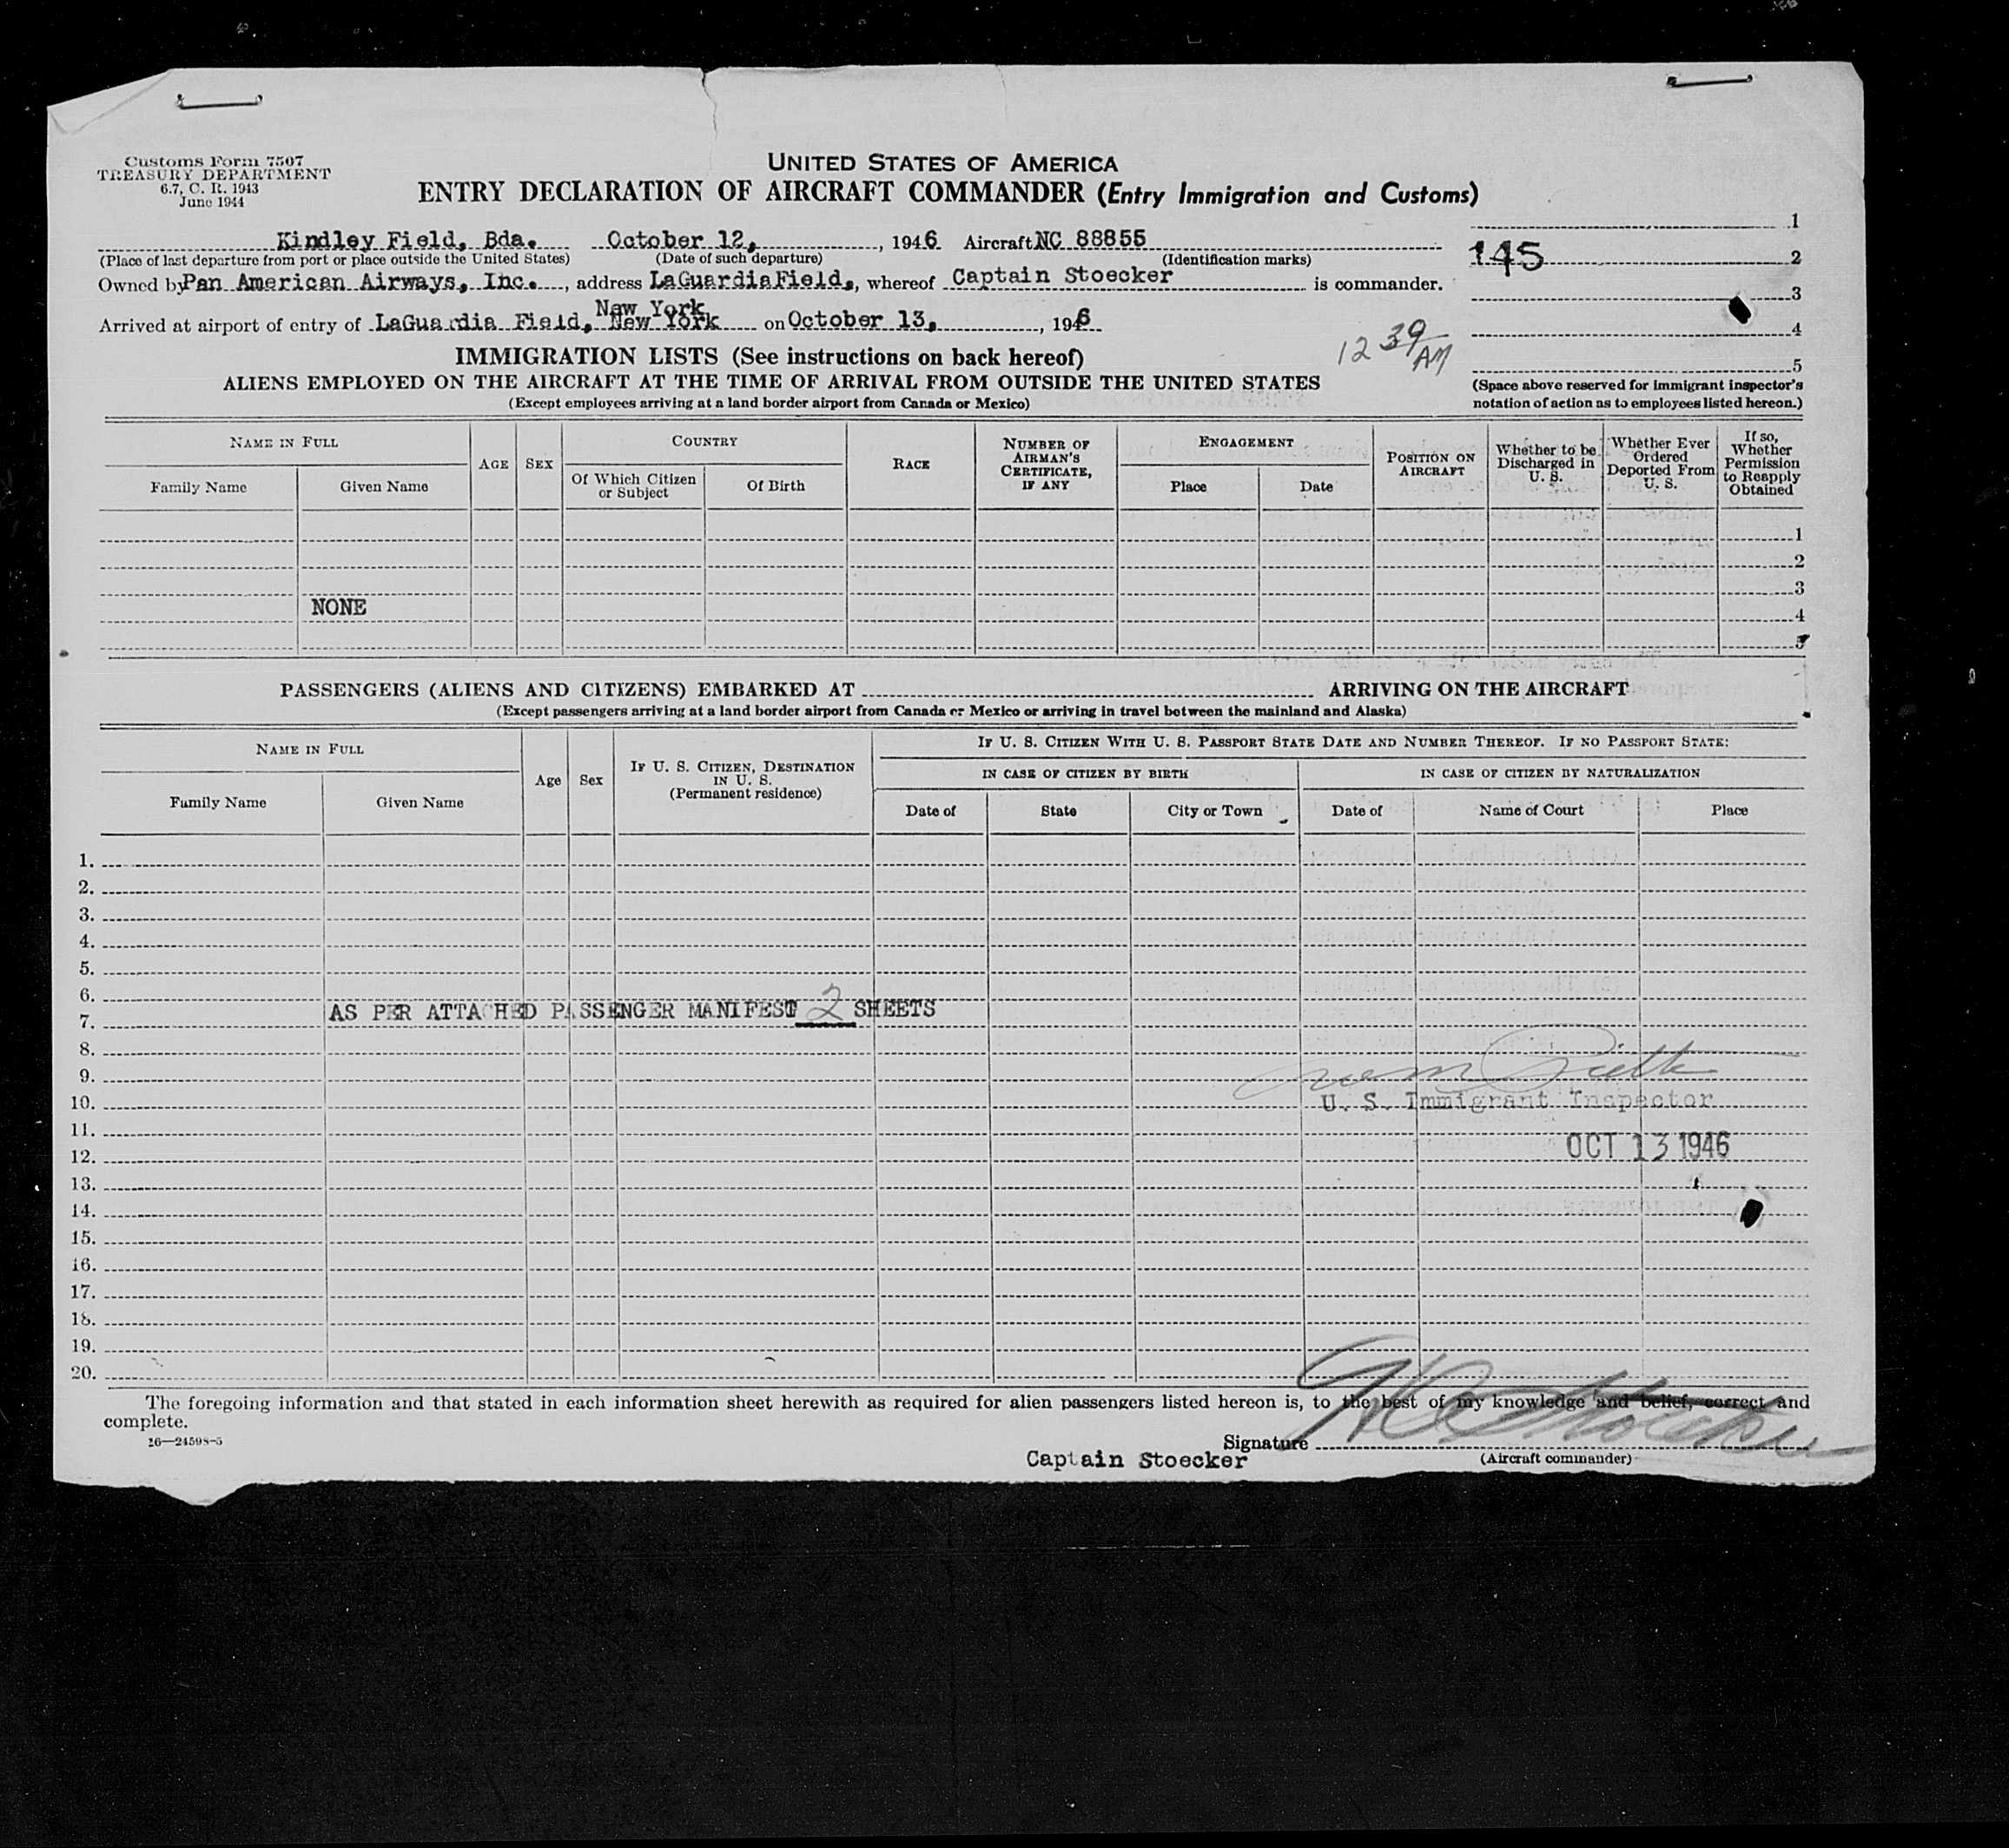 Customs Form 7507
TREASURY DEPARTMENT
6.7, C. R. 1943
June 1944
UNITED STATES OF AMERICA
ENTRY DECLARATION OF AIRCRAFT COMMANDER (Entry Immigration and Customs)
Kindley Field, Bda. October 12, , 1946 Aircraft NC 88855
(Place of last departure from port or place outside the United States) (Date of such departure) (Identification marks)
Owned by Pan American Airways, Inc. , address LaGuardia Field, , whereof Captain Stoecker is commander.
New York
Arrived at airport of entry of LaGuardia Field, New York on October 13, , 1946
1
145 2
3
4
5
12 39 AM
(Space above reserved for immigrant inspector's
notation of action as to employees listed hereon.)
IMMIGRATION LISTS (See instructions on back hereof)
ALIENS EMPLOYED ON THE AIRCRAFT AT THE TIME OF ARRIVAL FROM OUTSIDE THE UNITED STATES
(Except employees arriving at a land border airport from Canada or Mexico)
NAME IN FULL
Family Name
Given Name
AGE
SEX
COUNTRY
Of Which Citizen or Subject
Of Birth
RACE
NUMBER OF AIRMAN'S CERTIFICATE, IF ANY
ENGAGEMENT
Place
Date
POSITION ON AIRCRAFT
Whether to be Discharged in U. S.
Whether Ever Ordered Deported From U. S.
If so, Whether Permission to Reapply Obtained
1
2
3
NONE
4
5
PASSENGERS (ALIENS AND CITIZENS) EMBARKED AT ARRIVING ON THE AIRCRAFT
(Except passengers arriving at a land border airport from Canada or Mexico or arriving in travel between the mainland and Alaska)
NAME IN FULL
Family Name
Given Name
Age
Sex
IF U. S. CITIZEN, DESTINATION IN U. S.
(Permanent residence)
IF U. S. CITIZEN WITH U. S. PASSPORT STATE DATE AND NUMBER THEREOF. IF NO PASSPORT STATE:
IN CASE OF CITIZEN BY BIRTH
IN CASE OF CITIZEN BY NATURALIZATION
Date of
State
City or Town
Date of
Name of Court
Place
1.
2.
3.
4.
5.
6.
AS PER ATTACHED PASSENGER MANIFEST 2 SHEETS
7.
8.
9.
10. U. S. Immigrant Inspector
11.
12. OCT 13 1946
13.
14.
15.
16.
17.
18.
19.
20.
The foregoing information and that stated in each information sheet herewith as required for alien passengers listed hereon is, to the best of my knowledge and belief, correct and
complete.
16—24598-5
Signature
Captain Stoecker
(Aircraft commander)